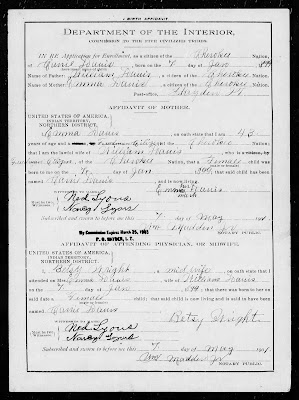 BIRTH AFFIDAVIT.
DEPARTMENT OF THE INTERIOR,
COMMISSION TO THE FIVE CIVILIZED TRIBES.
IN RE Application for Enrollment, as a citizen of the Cherokee Nation,
of Davis, born on the day of Jan
Name of Father: William Davis, a citizen of the Cherokee Nation.
Name of Mother: Emma Davis, a citizen of the Cherokee Nation.
Post-office,
AFFIDAVIT OF MOTHER.
UNITED STATES OF AMERICA,
INDIAN TERRITORY,
NORTHERN DISTRICT.
I, Emma Davis, on oath state that I am 40
years of age and a citizen, of the Cherokee Nation;
that I am the lawful wife of William Davis, who is a citizen, by
of the Cherokee Nation; that a Female child was
born to me on the day of Jan; that said child has been
named Davis, and is now living.
Emma Davis
WITNESSES TO MARK:
Ned Lyons
Nancy Lyons
Subscribed and sworn to before me this 7 day of May
My Commission Expires March 25, 1903
NOTARY PUBLIC.
AFFIDAVIT OF ATTENDING PHYSICIAN, OR MIDWIFE.
UNITED STATES OF AMERICA,
INDIAN TERRITORY,
NORTHERN DISTRICT.
I, Betsy Wright, a midwife, on oath state that I
attended on Mrs. Emma Davis, wife of William Davis
on the day of Jan; that there was born to her on
said date a Female child; that said child is now living and is said to have been
named Davis
Betsy Wright
WITNESSES TO MARK:
Ned Lyons
Nancy Lyons
Subscribed and sworn to before me this 7 day of May
NOTARY PUBLIC.